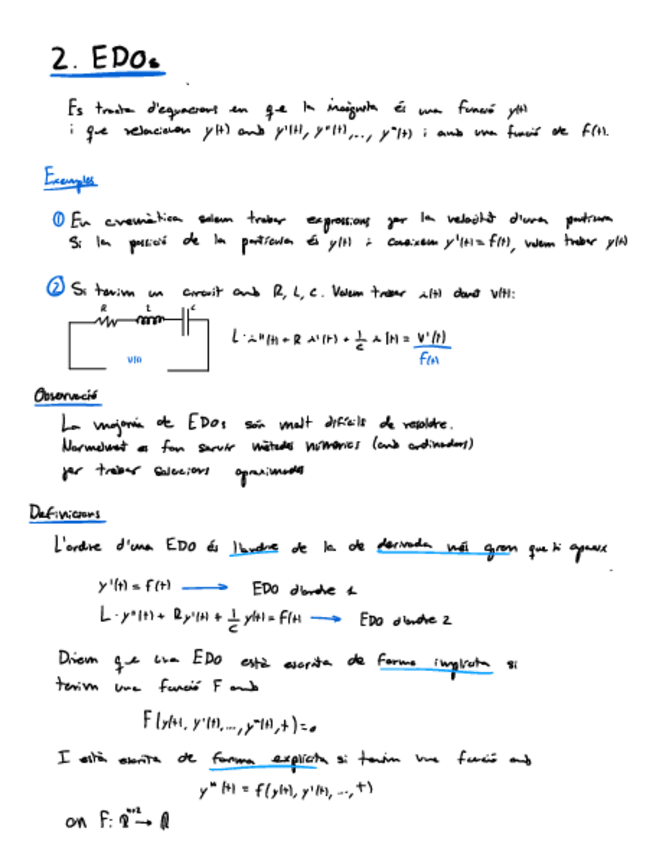 2. EDOs
Es tracta d'equacions en que la incògnita és una funció y(t)
i que relacionen y(t) amb y'(t), y''(t), ..., yⁿ(t) i amb una funció de f(t).
Exemples
① En cinemàtica solem trobar expressions per la velocitat d'una partícula
Si la posició de la partícula és y(t) i coneixem y'(t) = f(t), volem trobar y(t)
② Si tenim un circuit amb R, L, C. Volem trobar i(t) donat V(t):
R L C
L·i''(t) + R i'(t) + 1/C i(t) = V'(t)
V(t)
f(t)
Observació
La majoria de EDOs són molt difícils de resoldre.
Normalment es fan servir mètodes numèrics (amb ordinadors)
per trobar solucions aproximades
Definicions
L'ordre d'una EDO és l'ordre de la de derivada més gran que hi apareix
y'(t) = f(t) → EDO d'ordre 1
L·y''(t) + Ry'(t) + 1/C y(t) = f(t) → EDO d'ordre 2
Diem que una EDO està escrita de forma implícita si
tenim una funció F amb
F(y(t), y'(t), ..., yⁿ(t), t) = 0
I està escrita de forma explícita si tenim una funció amb
yⁿ(t) = f(y(t), y'(t), ..., t)
on F: ℝⁿ⁺² → ℝ